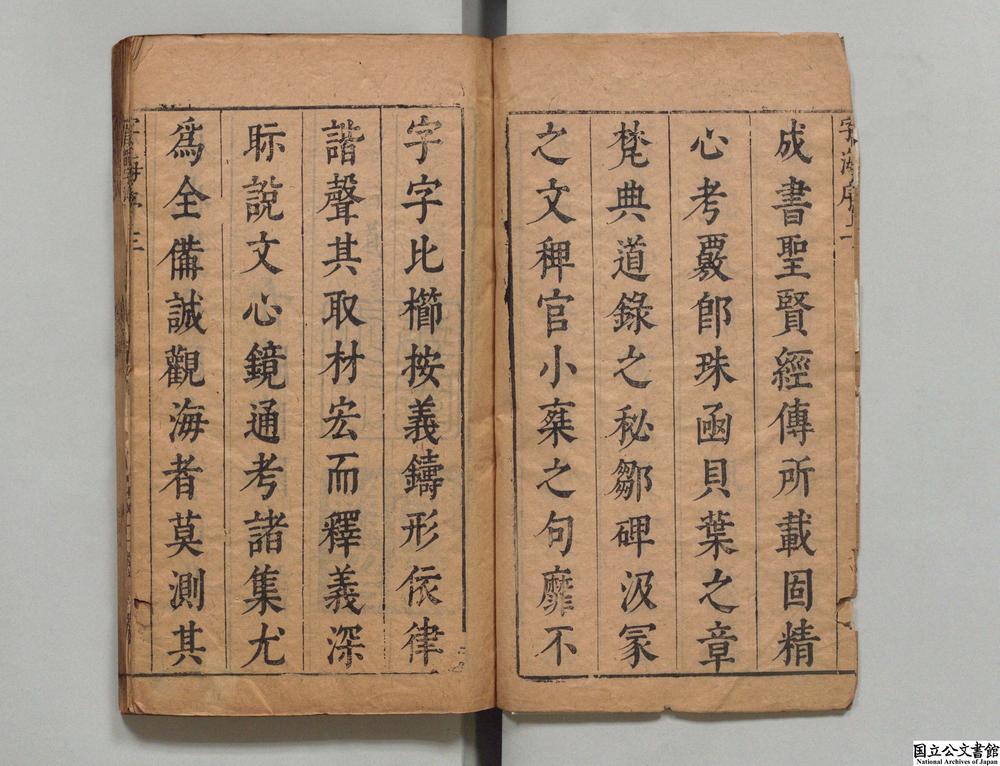 成書聖賢經傳所載固精
心考覈卽珠函貝葉之章
梵典道錄之秘鄒碑汲冡
之文稗官小乘之句靡不
字字比櫛按義鑄形依律
諧聲其取材宏而釋義深
眎說文心鏡通考諸集尤
爲全備誠觀海者莫測其
字海序 二
三
国立公文書館
National Archives of Japan